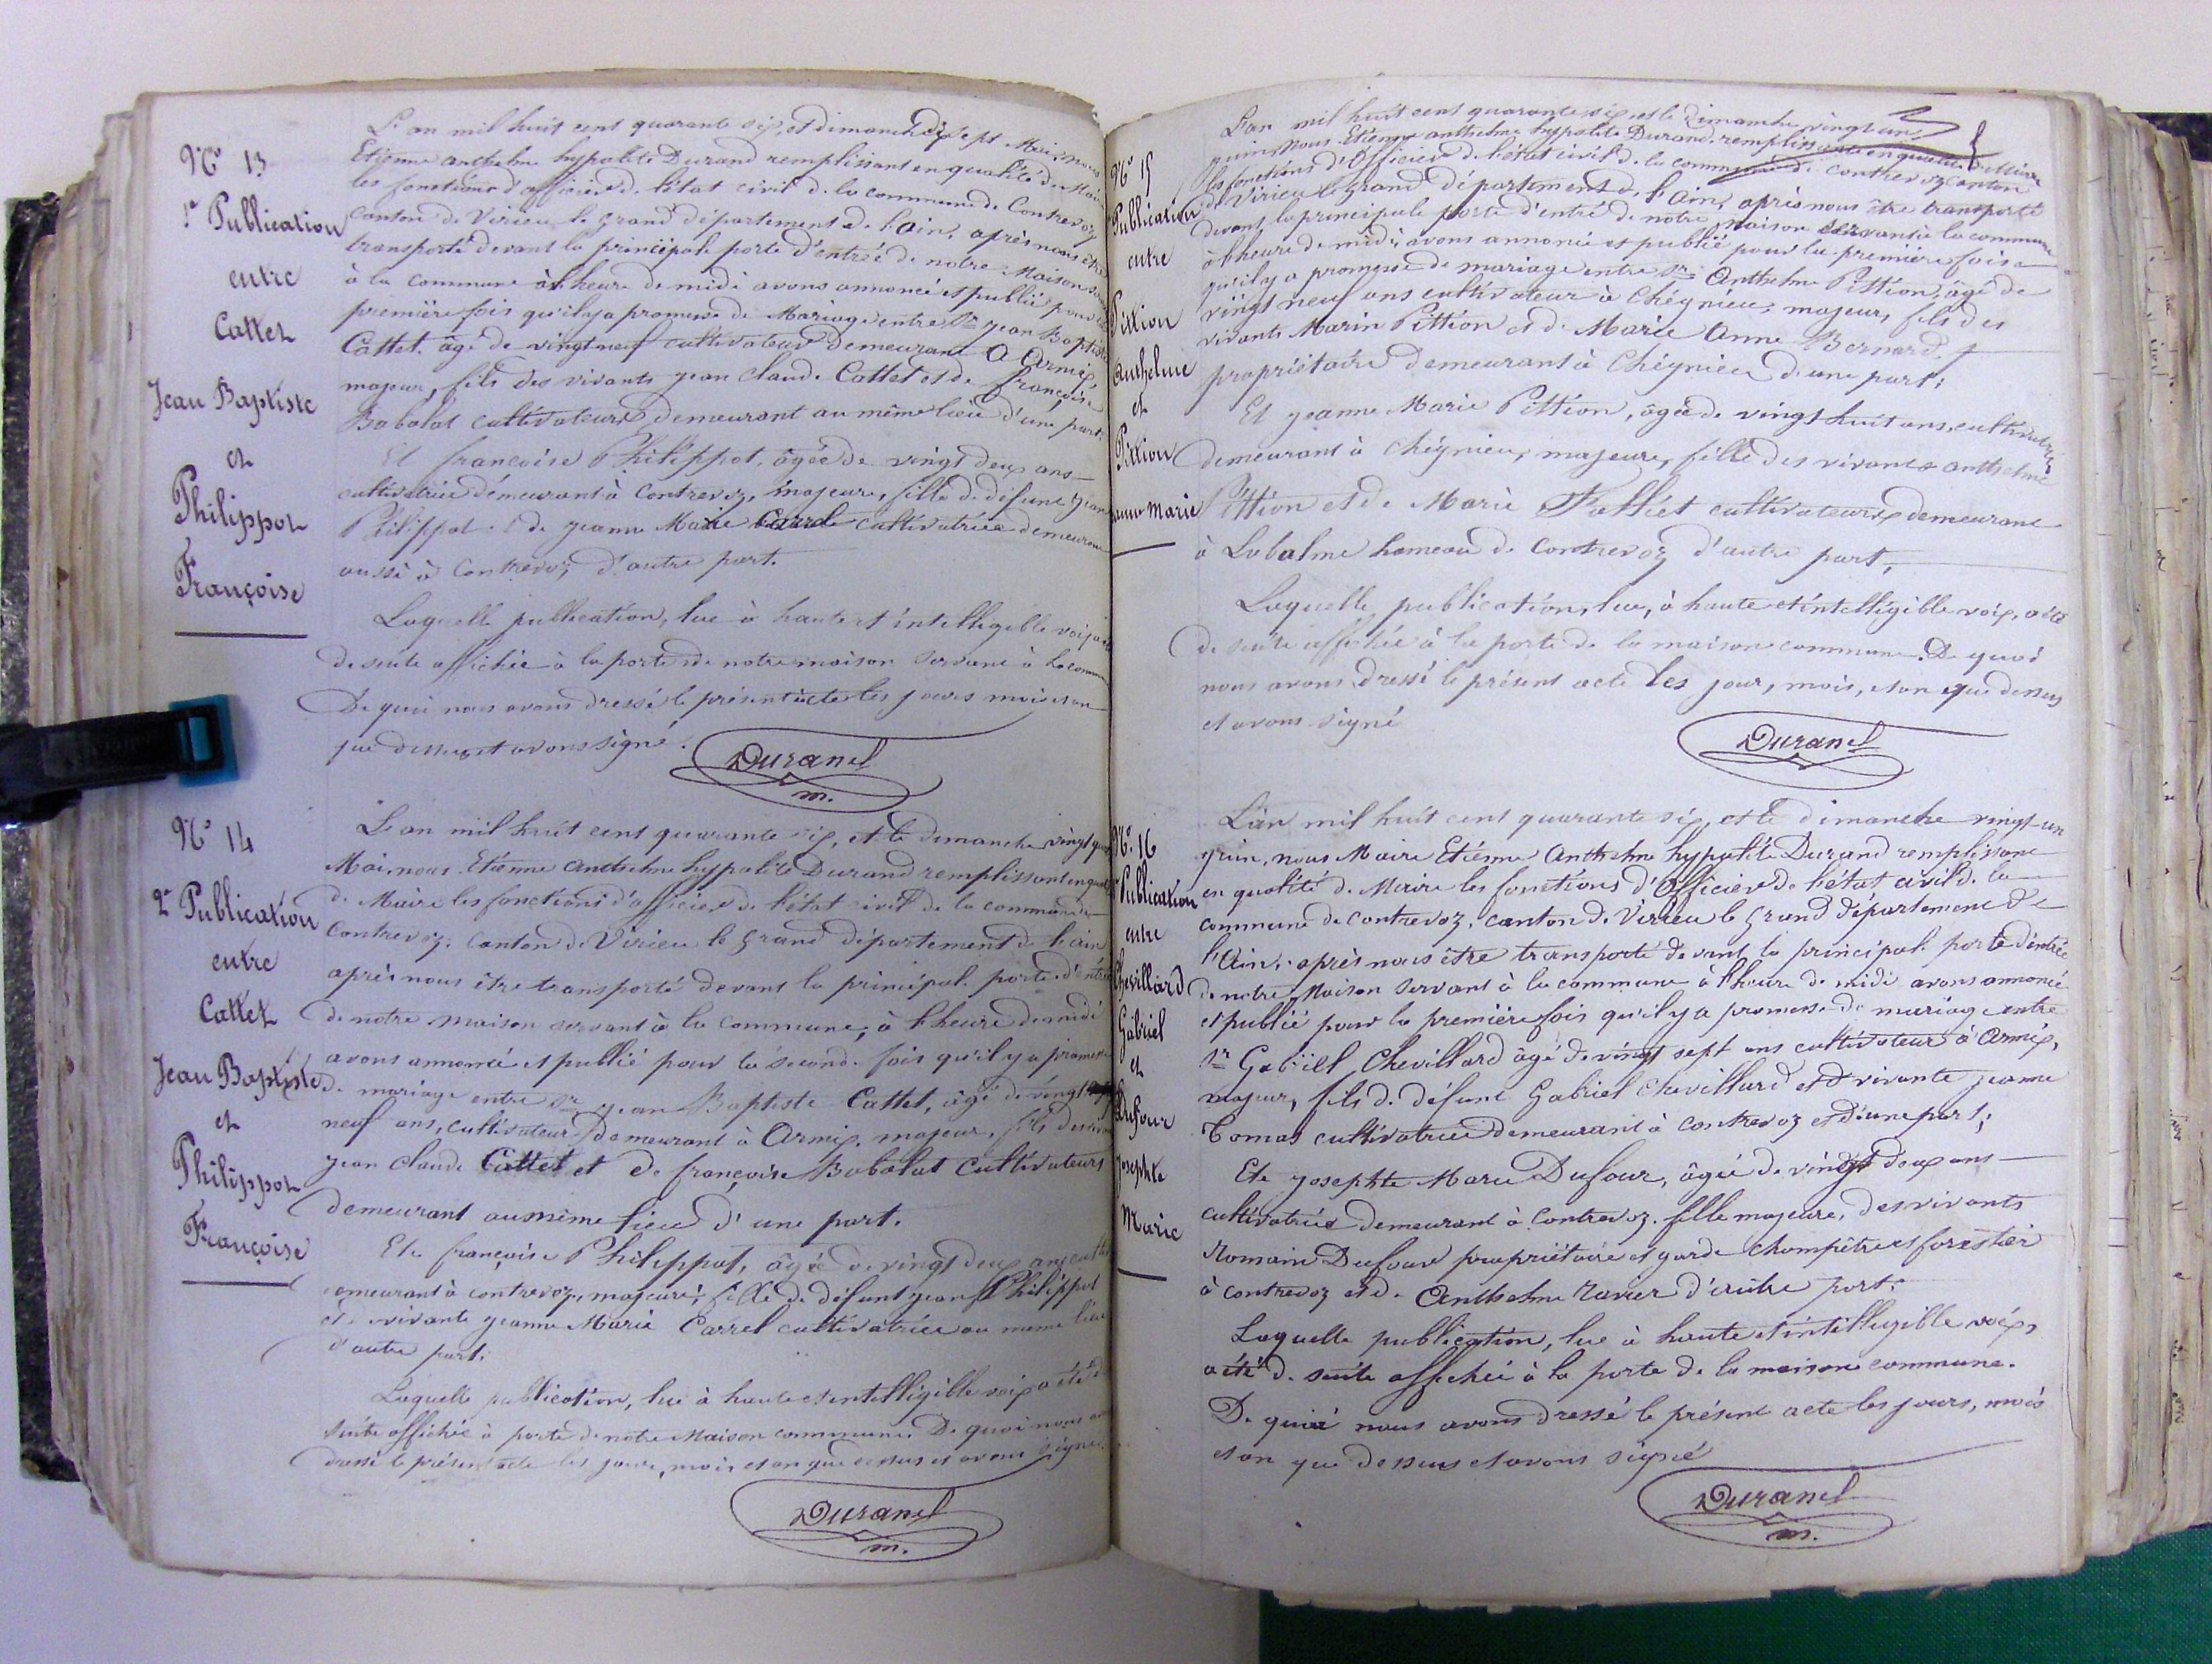 N° 13
1re Publication
entre
Cattet
Jean Baptiste
et
Philippot
Françoise
L'an mil huit cent quarante six, et dimanche dix sept Mai, nous
Etienne anthelme hypolite Durand remplissant en qualité de Maire
les fonctions d'officier de l'état civil de la commune de Contrevoz
canton de Virieu le grand département de l'ain, après nous être
transporté devant la principale porte d'entrée de notre Maison
à la commune à l'heure de midi avons annoncé et publié pour la
première fois qu'il y a promesse de Mariage entre Sr jean Baptiste
Cattet. âgé de vingt neuf cultivateur demeurant à Armix,
majeur, fils des vivants jean claude Cattet et de françoise
Bobolat cultivateurs demeurant au même lieu d'une part.
Et françoise Philippot, âgée de vingt deux ans
cultivatrice démeurant à Contrevoz, majeure, fille de défunt jean
Philippot et de jeanne Marie Carrel cultivatrice demeurant
aussi à Contrevoz, d'autre part.
Laquelle publication, lue à haute et intelligible voix a été
de suite affichée à la porte de notre maison servant à la commune
De quoi nous avons dressé le présent acte les jours mois et an
que dessus et avons signé.
Durand
m.
N° 14
2e Publication
entre
Cattet
Jean Baptiste
et
Philippot
Françoise
L'an mil huit cent quarante six, et le dimanche vingt quatre
Mai, nous Etienne anthelme hypolite Durand remplissant en qualité
de Maire les fonctions d'officier de l'état civil de la commune de
Contrevoz. canton de Virieu le grand département de l'ain
après nous être transporté devant la principale porte d'entrée
de notre maison servant à la commune, à l'heure de midi
avons annoncé et publié pour la seconde fois qu'il y a promesse
de mariage entre Sr jean Baptiste Cattet, âgé de vingt
neuf ans, cultivateur demeurant à Armix, majeur, fils des vivants
jean claude Cattet et de françoise Bobolat cultivateurs
demeurant au même lieu d'une part.
Et françoise Philippot, âgée de vingt deux ans
demeurant à contrevoz, majeure, fille de défunt jean Philippot
et vivante jeanne Marie Carrel cultivatrice au même lieu
d'autre part.
Laquelle publication, lue à haute et intelligible voix a été de
suite affichée à porte de notre Maison commune. De quoi nous avons
dressé le présent acte les jours, mois et an que dessus et avons signé.
Durand
m.
N° 15
Publication
entre
Pittion
Anthelme
et
Pittion
Jeanne Marie
L'an mil huit cent quarante six et le dimanche vingt un
juin, Nous Etienne anthelme hypolite Durand remplissant en qualité de Maire
les fonctions d'Officier de l'état civil de la commune de contrevoz canton
de Virieu le grand département de l'Ain, après nous être transporté
devant la principale porte d'entré de notre Maison servant à la commune
à l'heure de midi, avons annoncé et publié pour la première fois
qu'il y a promesse de mariage entre Sr Anthelme Pittion, âgé de
vingt neuf ans cultivateur à Chégnieu, majeur, fils des
vivants Marin Pittion et de Marie Anne Bernard
propriétaire demeurant à Chégnieu d'une part,
Et jeanne Marie Pittion, âgée de vingt huit ans, cultivatrice
demeurant à Chégnieu, majeure, fille des vivants anthelme
Pittion et de Marie Falliet cultivateurs demeurant
à Labalme hameau de Contrevoz d'autre part,
Laquelle publication, lue, à haute et intelligible voix, a été
de suite affichée à la porte de la maison commune. De quoi
nous avons dressé le présent acte les jour, mois, et an que dessus
et avons signé
Durand
N° 16
Publication
entre
Chevillard
Gabriel
et
Dufour
Josephte
Marie
L'an mil huit cent quarante six, et le dimanche vingt-un
juin, nous Maire Etienne Anthelme hypolite Durand remplissant
en qualité de Maire les fonctions d'Officier de l'état civil de la
commune de contrevoz, canton de Virieu le grand département de
l'Ain, après nous être transporté devant la principale porte d'entrée
de notre Maison servant à la commune à l'heure de midi avons annoncé
et publié pour la première fois qu'il y a promesse de mariage entre
Sr Gabriel Chevillard âgé de vingt sept ans cultivateur à Armix,
majeur, fils de défunt Gabriel Chevillard et de vivante jeanne
Tomas cultivatrice demeurant à contrevoz et d'une part;
Et josephte Marie Dufour, âgée de vingt deux ans
cultivatrice demeurant à Contrevoz. fille majeure, des vivants
Romain Dufour propriétaire et garde champêtre et forestier
à contrevoz et de Anthelme Ravier d'autre part.
Laquelle publication, lue à haute et intelligible voix,
a été de suite affichée à la porte de la maison commune.
De quoi nous avons dressé le présent acte les jours, mois
et an que dessus et avons signé
Durand
m.